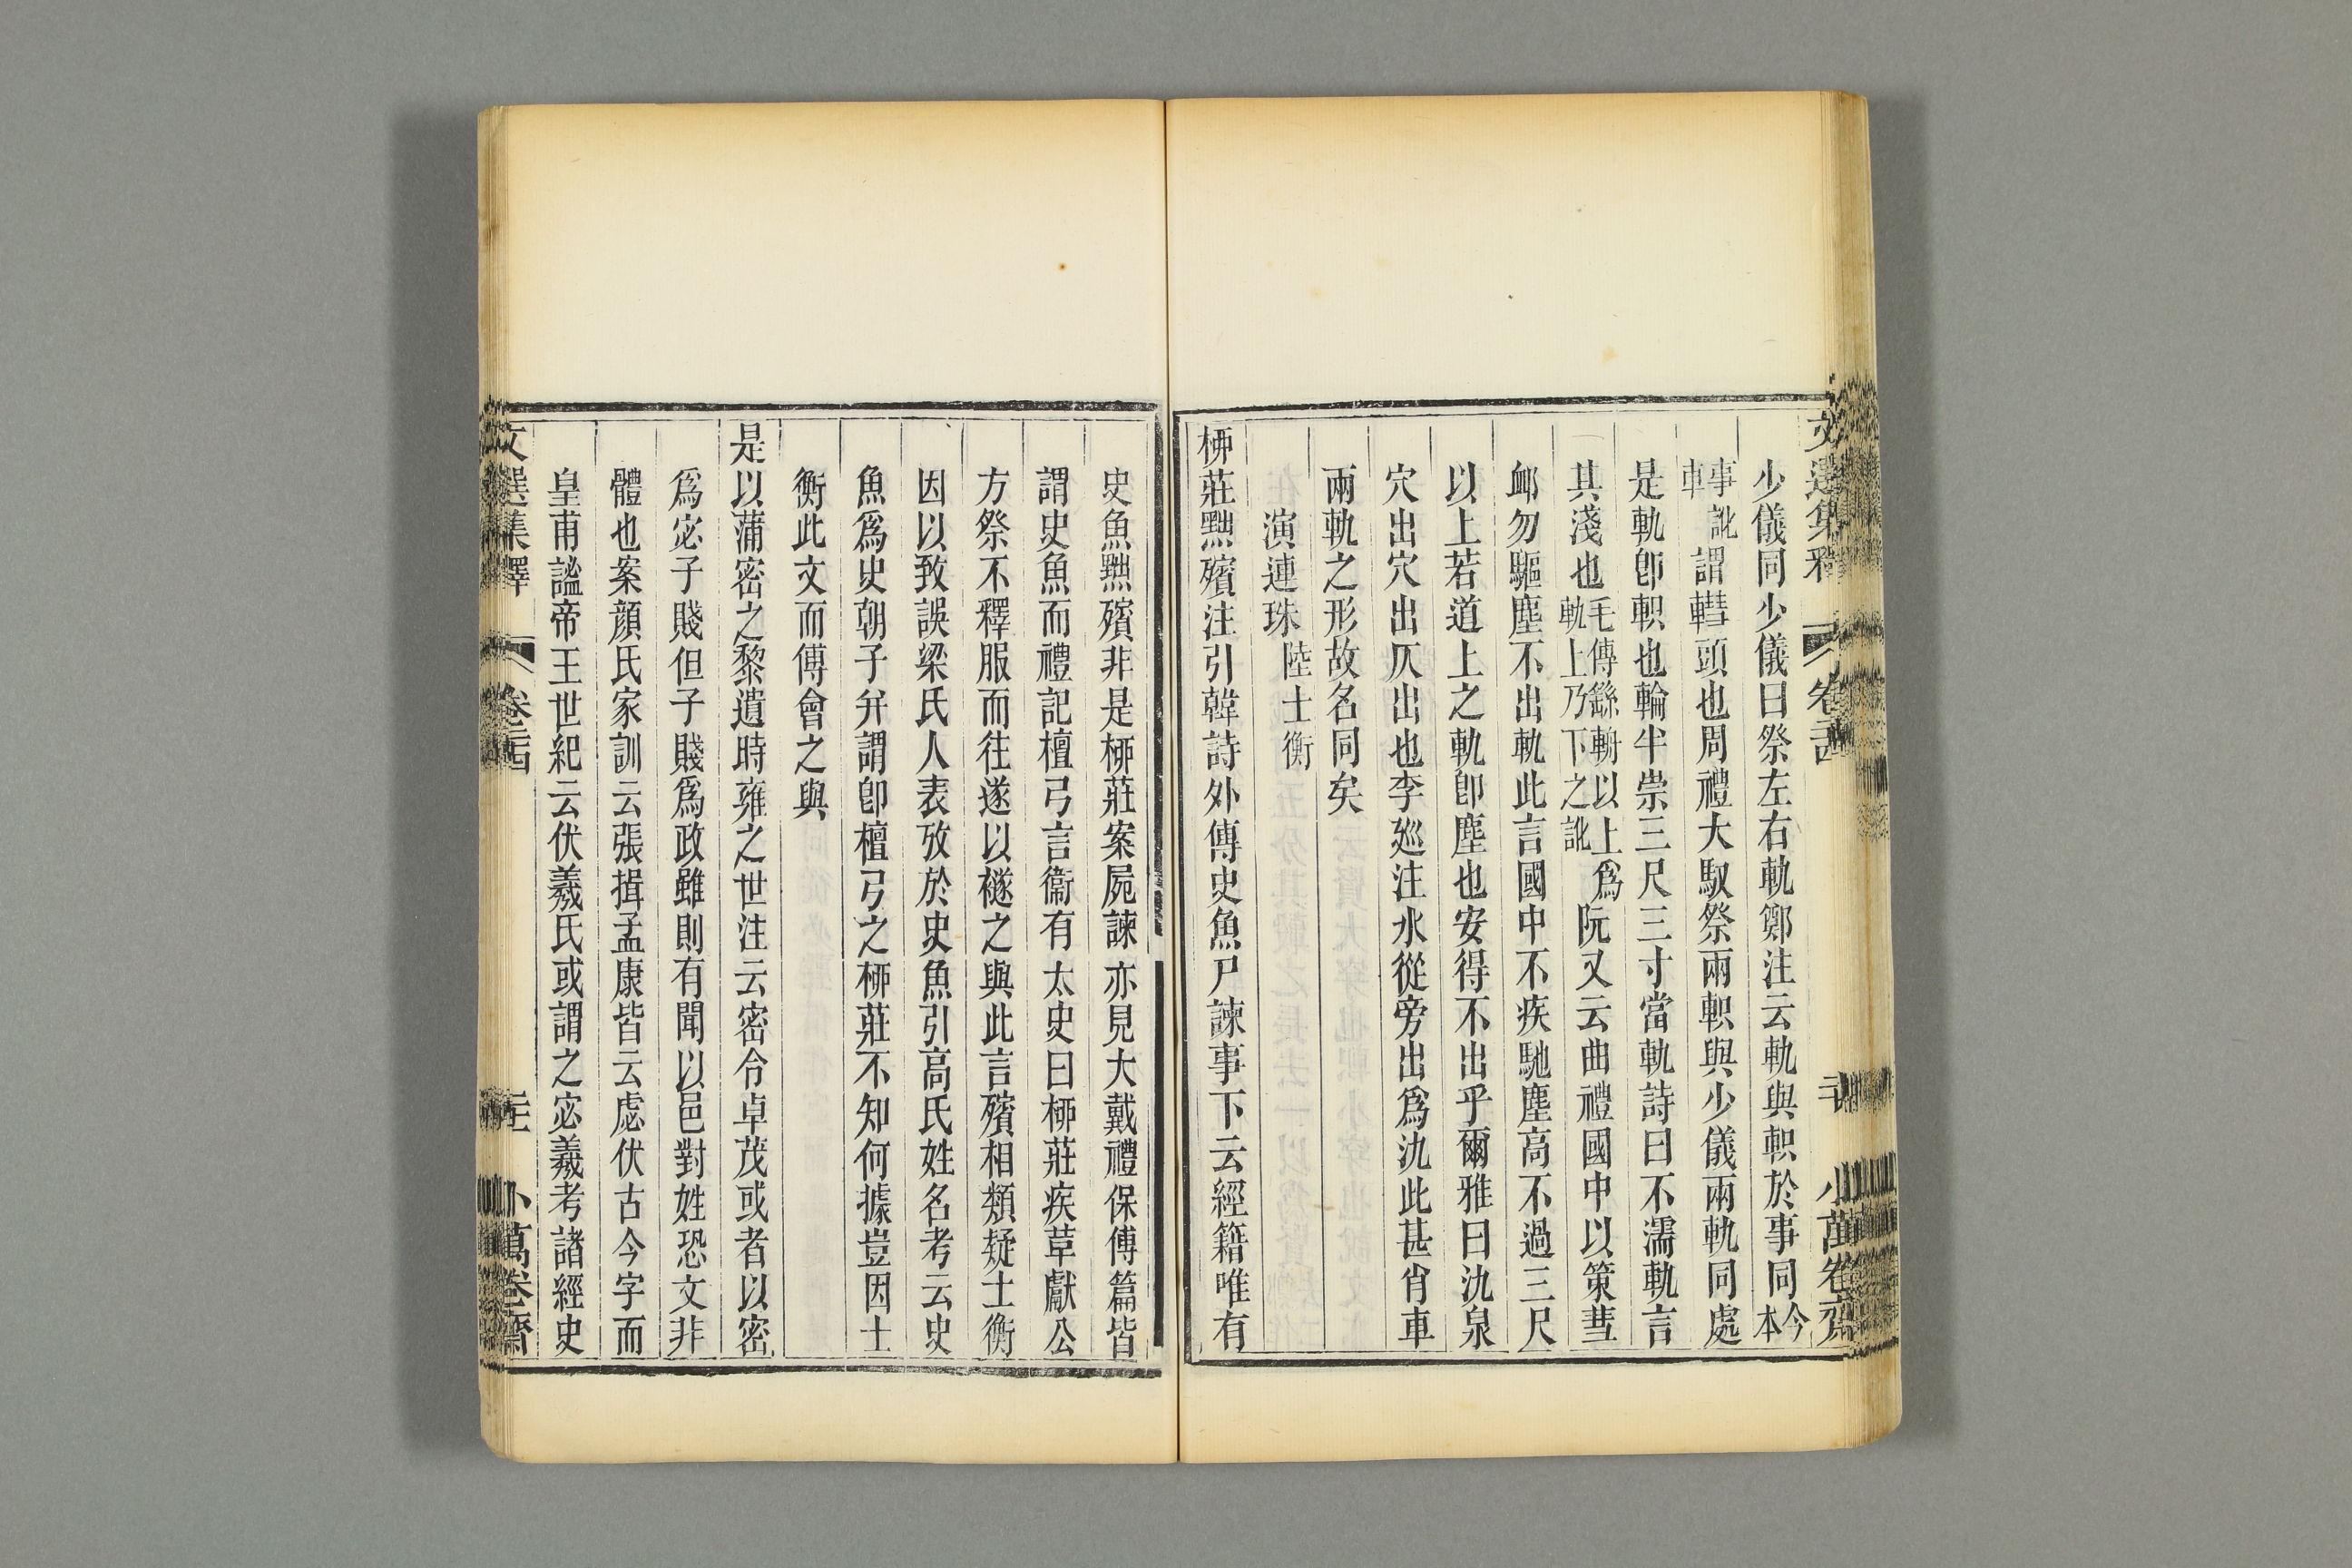 文選集釋 卷二十四 二十 小萬卷齋
少儀同少儀曰祭左右軌鄭注云軌與軹於事同今本
事訛車謂轊頭也周禮大馭祭兩軹與少儀兩軌同處
是軌卽軹也輪半崇三尺三寸當軌詩曰不濡軌言
其淺也毛傳繇輈以上爲軌上乃下之訛阮又云曲禮國中以策彗
卹勿驅塵不出軌此言國中不疾馳塵高不過三尺
以上若道上之軌卽塵也安得不出乎爾雅曰氿泉
穴出穴出仄出也李廵注水從旁出爲氿此甚肖車
兩軌之形故名同矣
演連珠 陸士衡
桺莊黜殯注引韓詩外傳史魚尸諫事下云經籍唯有
史魚黜殯非是桺莊案屍諫亦見大戴禮保傅篇皆
謂史魚而禮記檀弓言衞有太史曰桺莊疾草獻公
方祭不釋服而往遂以襚之與此言殯相類疑士衡
因以致誤梁氏人表攷於史魚引高氏姓名考云史
魚爲史朝子弁謂卽檀弓之桺莊不知何據豈因士
衡此文而傅會之與
是以蒲密之黎遺時雍之世注云密令卓茂或者以密
爲宓子賤但子賤爲政雖則有聞以邑對姓恐文非
體也案顏氏家訓云張揖孟康皆云虙伏古今字而
皇甫謐帝王世紀云伏羲氏或謂之宓羲考諸經史
文選集釋 卷二十四 二十一 小萬卷齋